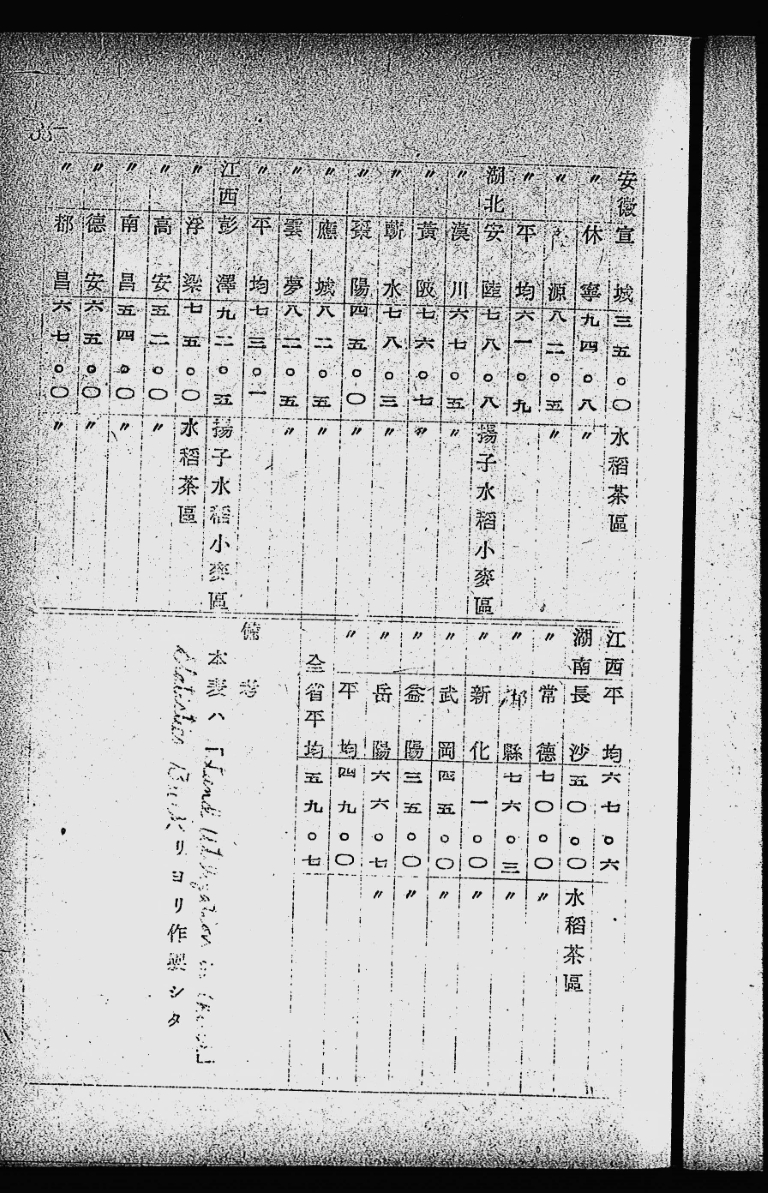 安徽宣城三五。〇水稻茶區
〃休寧九四。八〃
〃源八二。五〃
〃平均六一。九
湖北安陸七八。八揚子水稻小麥區
〃漢川六七。五〃
〃黃陂七六。七〃
〃蘄水七八。三〃
〃棗陽四五。〇〃
〃應城八二。五〃
〃雲夢八二。五〃
〃平均七三。一
江西彭澤九二。五揚子水稻小麥區
〃浮梁七五。〇水稻茶區
〃高安五二。〇〃
〃南昌五四。〇〃
〃德安六五。〇〃
〃都昌六七。〇〃
江西平均六七。六
湖南長沙五〇。〇水稻茶區
〃常德七〇。〇〃
〃郴縣七六。三〃
〃新化一。〇〃
〃武岡四五。〇〃
〃益陽三五。〇〃
〃岳陽六六。七〃
〃平均四九。〇
全省平均五九。七
備考
本表ハ「Land Utilization in China」
Statistics Book ヨリ作製シタ